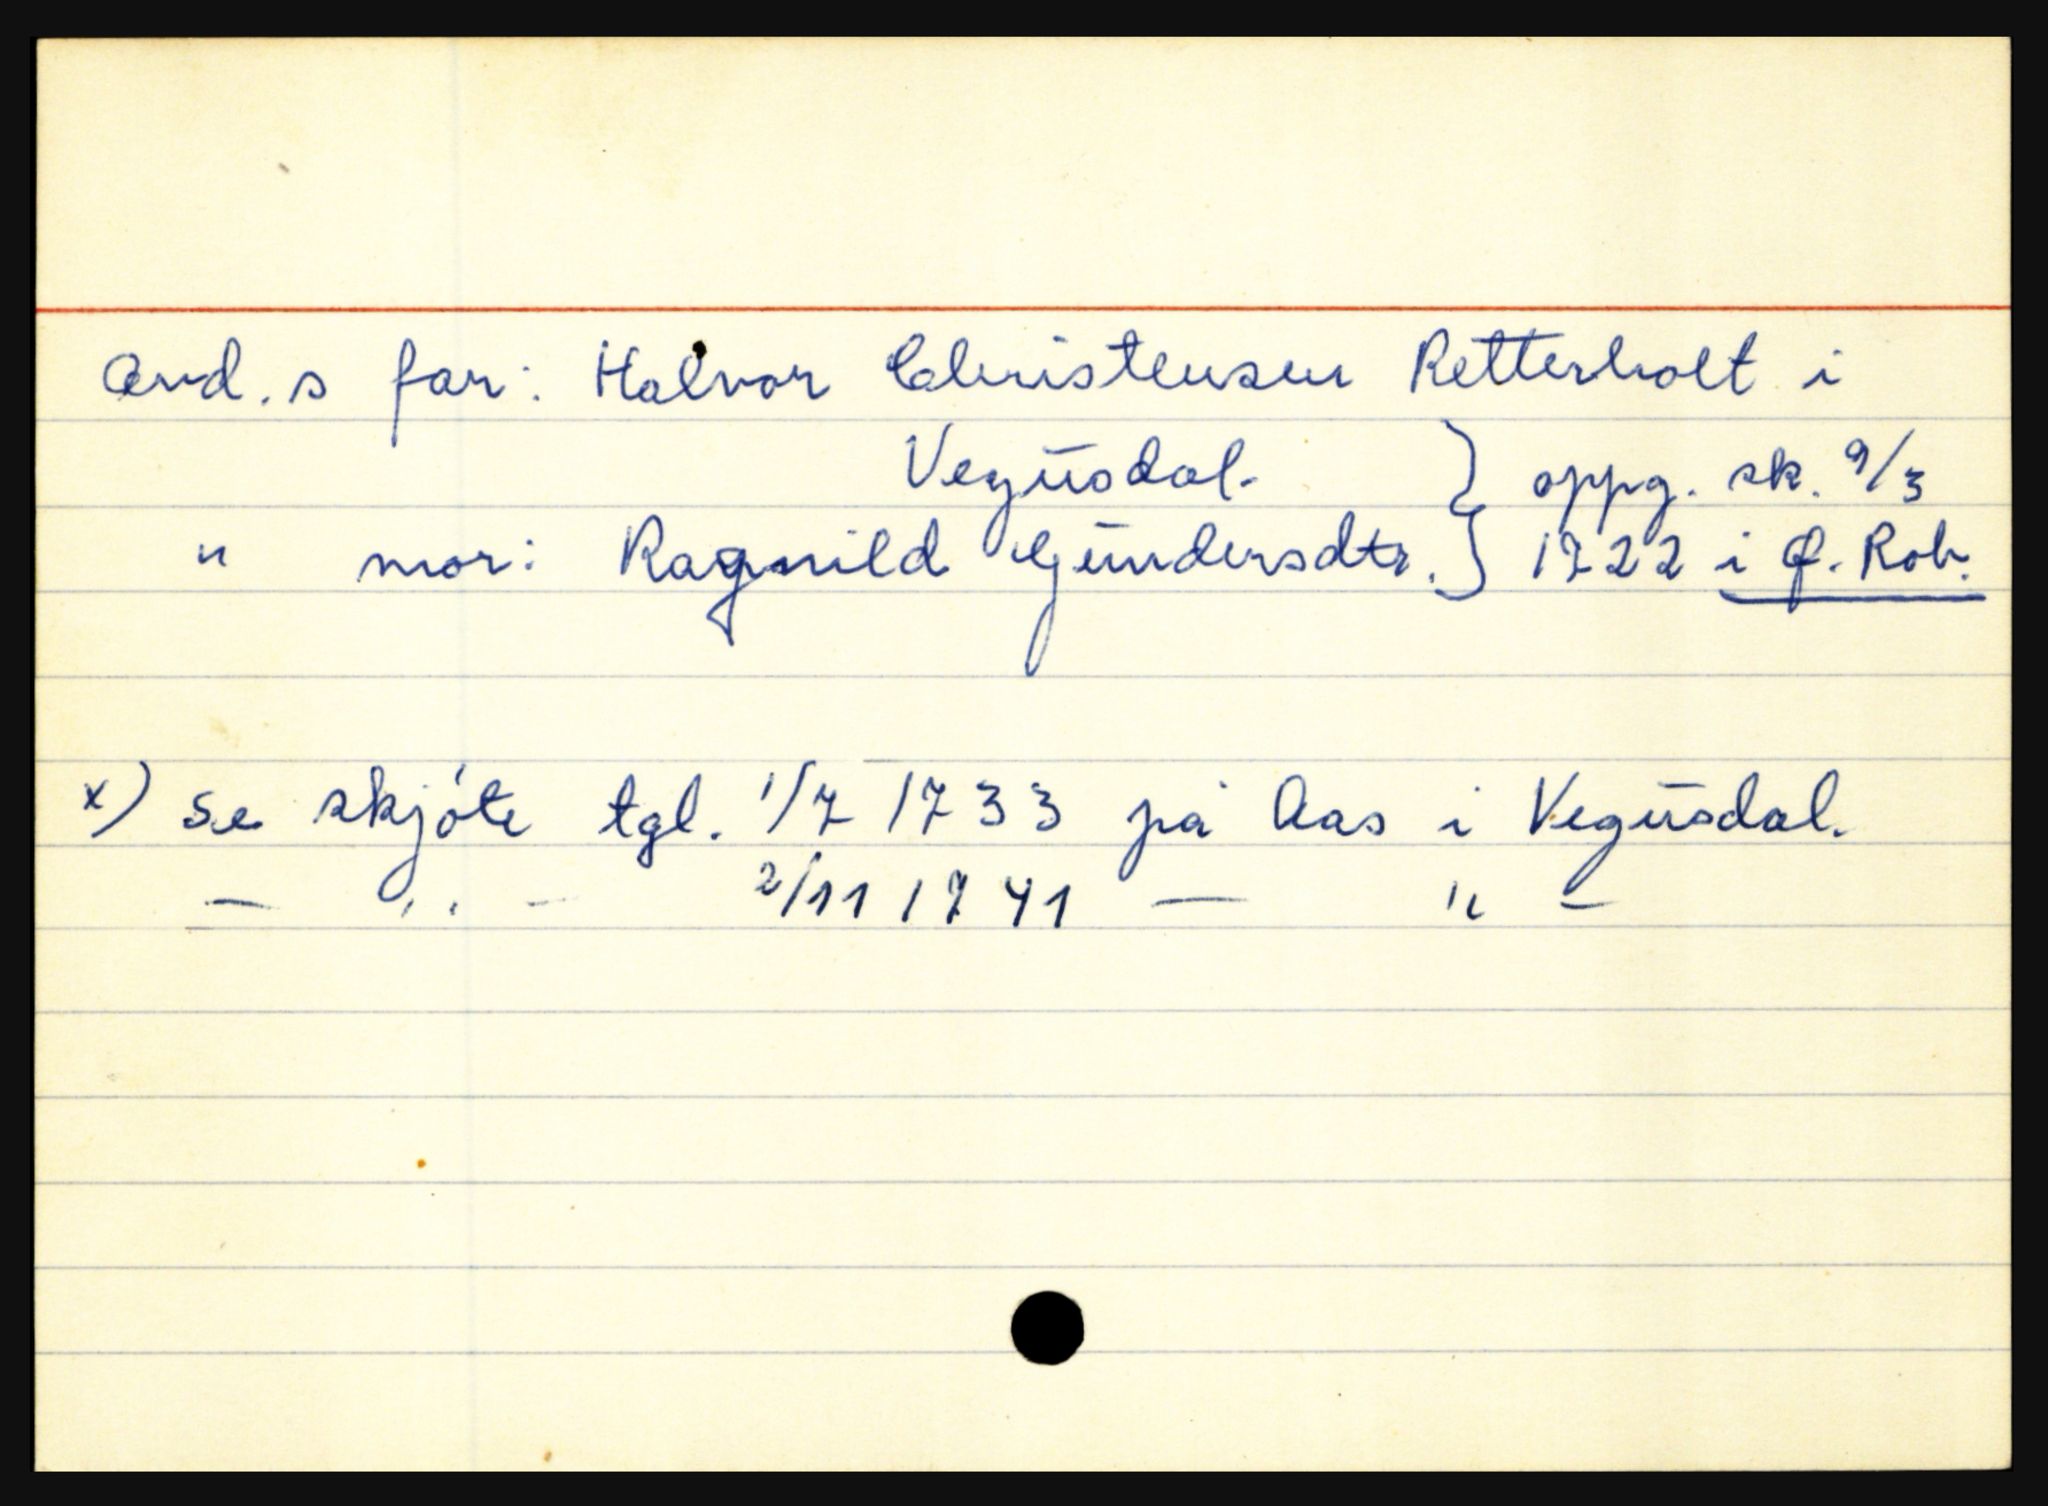 Avd.s far: Halvor Christensen Retterholt i
Vegusdal. } oppg. sk. 9/3
" mor: Ragnild Gundersdtr. } 1722 i Ø. Rob.
x) se skjøte tgl. 1/7 1733 på Aas i Vegusdal.
— " — 2/11 1741 — " —